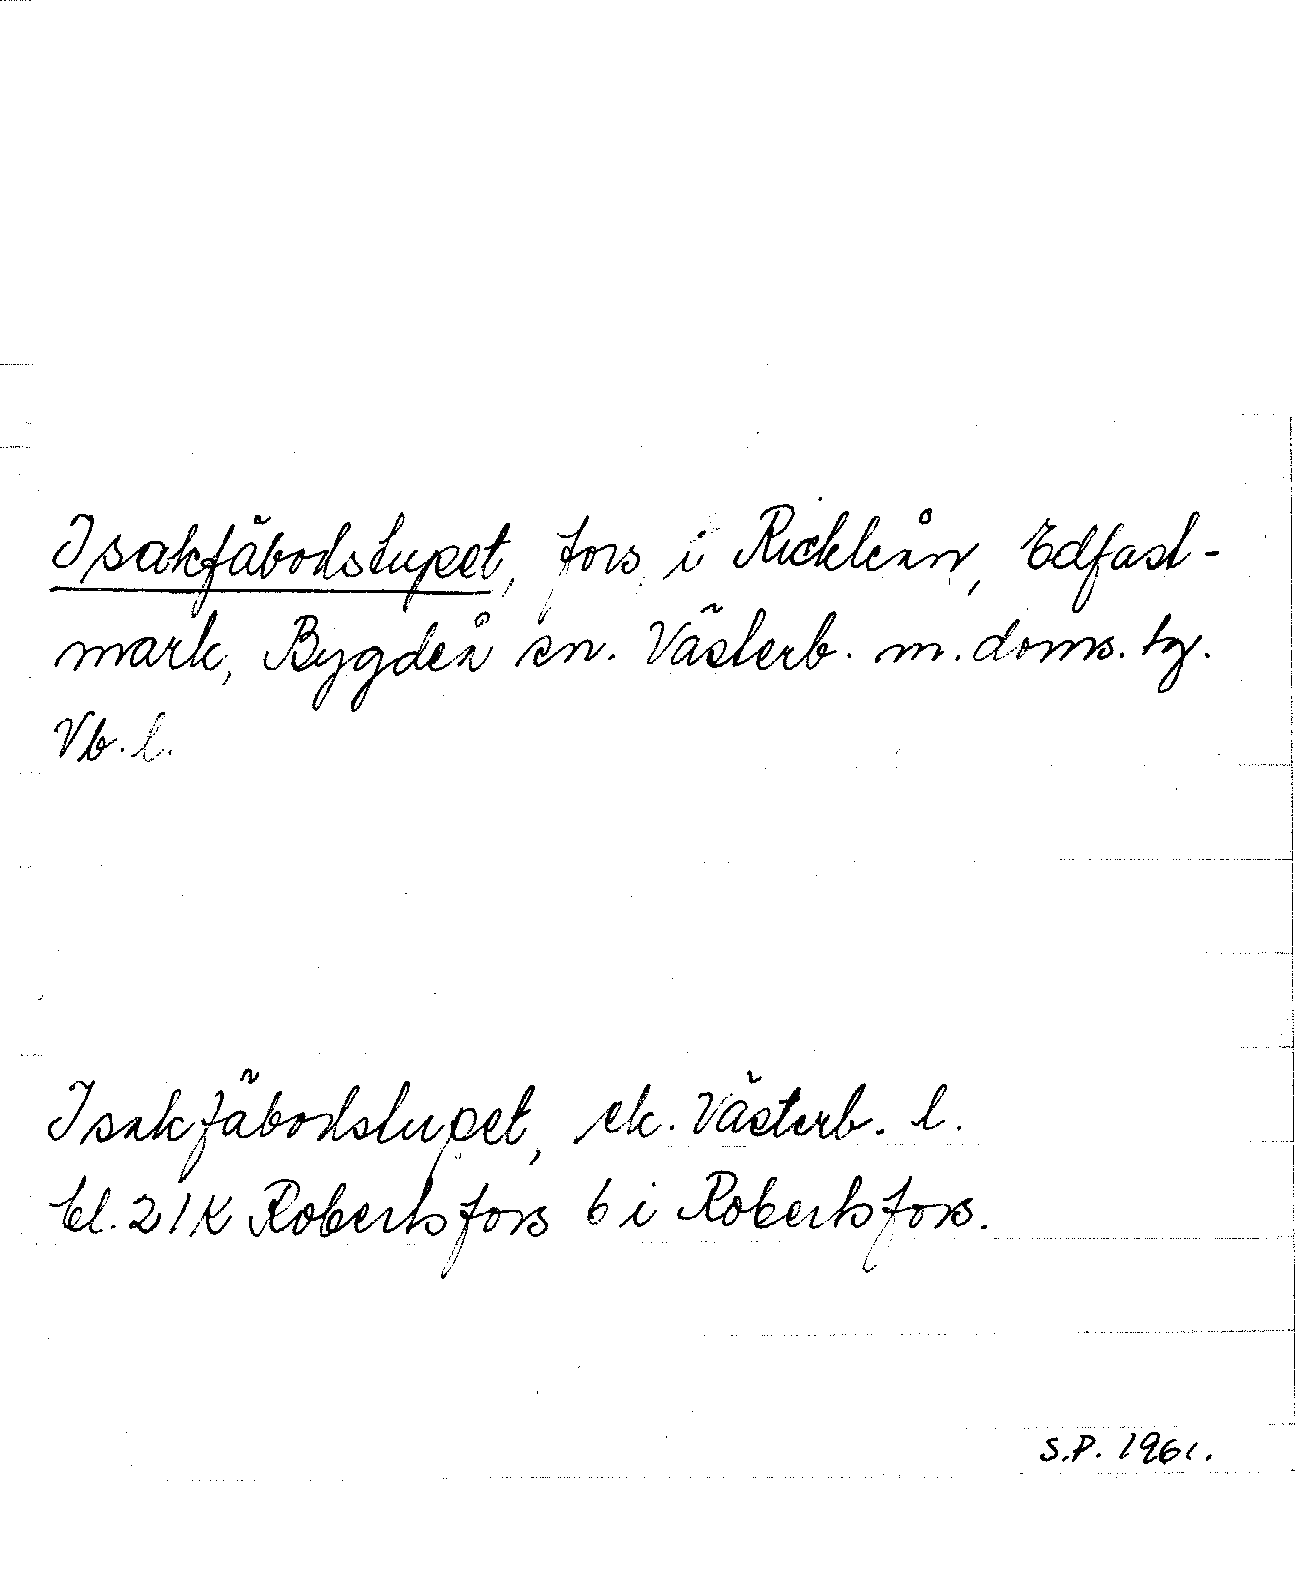 Isakfäbodstupet, fors i Rickleån, Edfast-
mark, Bygdeå sn. Västerb. m. doms. tg.
Vb. l.
Isakfäbodstupet, ek. Västerb. l.
bl. 21K Robertsfors 6 i Robertsfors.
S.P. 1961.